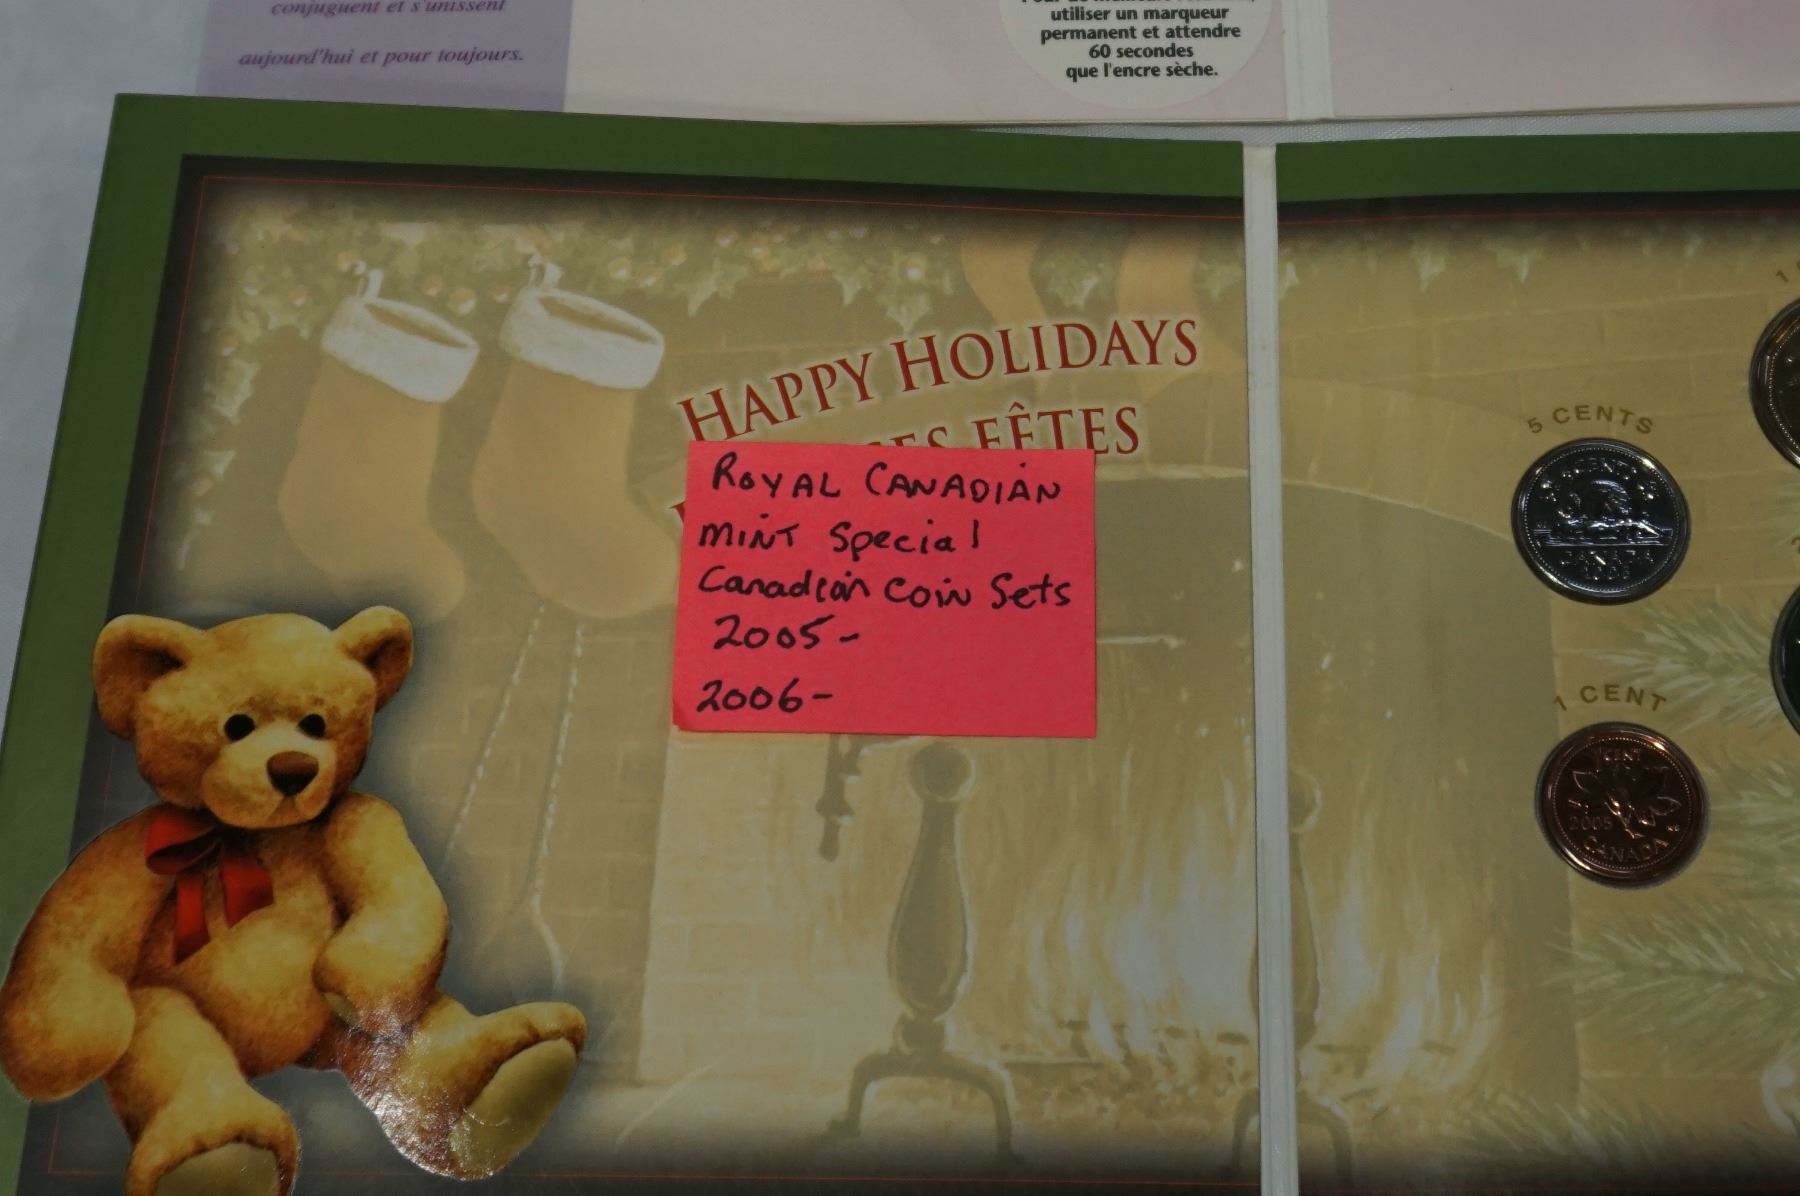 conjuguent et s'unissent
aujourd'hui et pour toujours.
utiliser un marqueur
permanent et attendre
60 secondes
que l'encre sèche.
HAPPY HOLIDAYS
FÊTES
ROYAL CANADIAN
MINT Special
Canadian Coin Sets
2005-
2006-
5 CENTS
5 CENTS
CANADA
2005
1 CENT
1 CENT
2005
CANADA